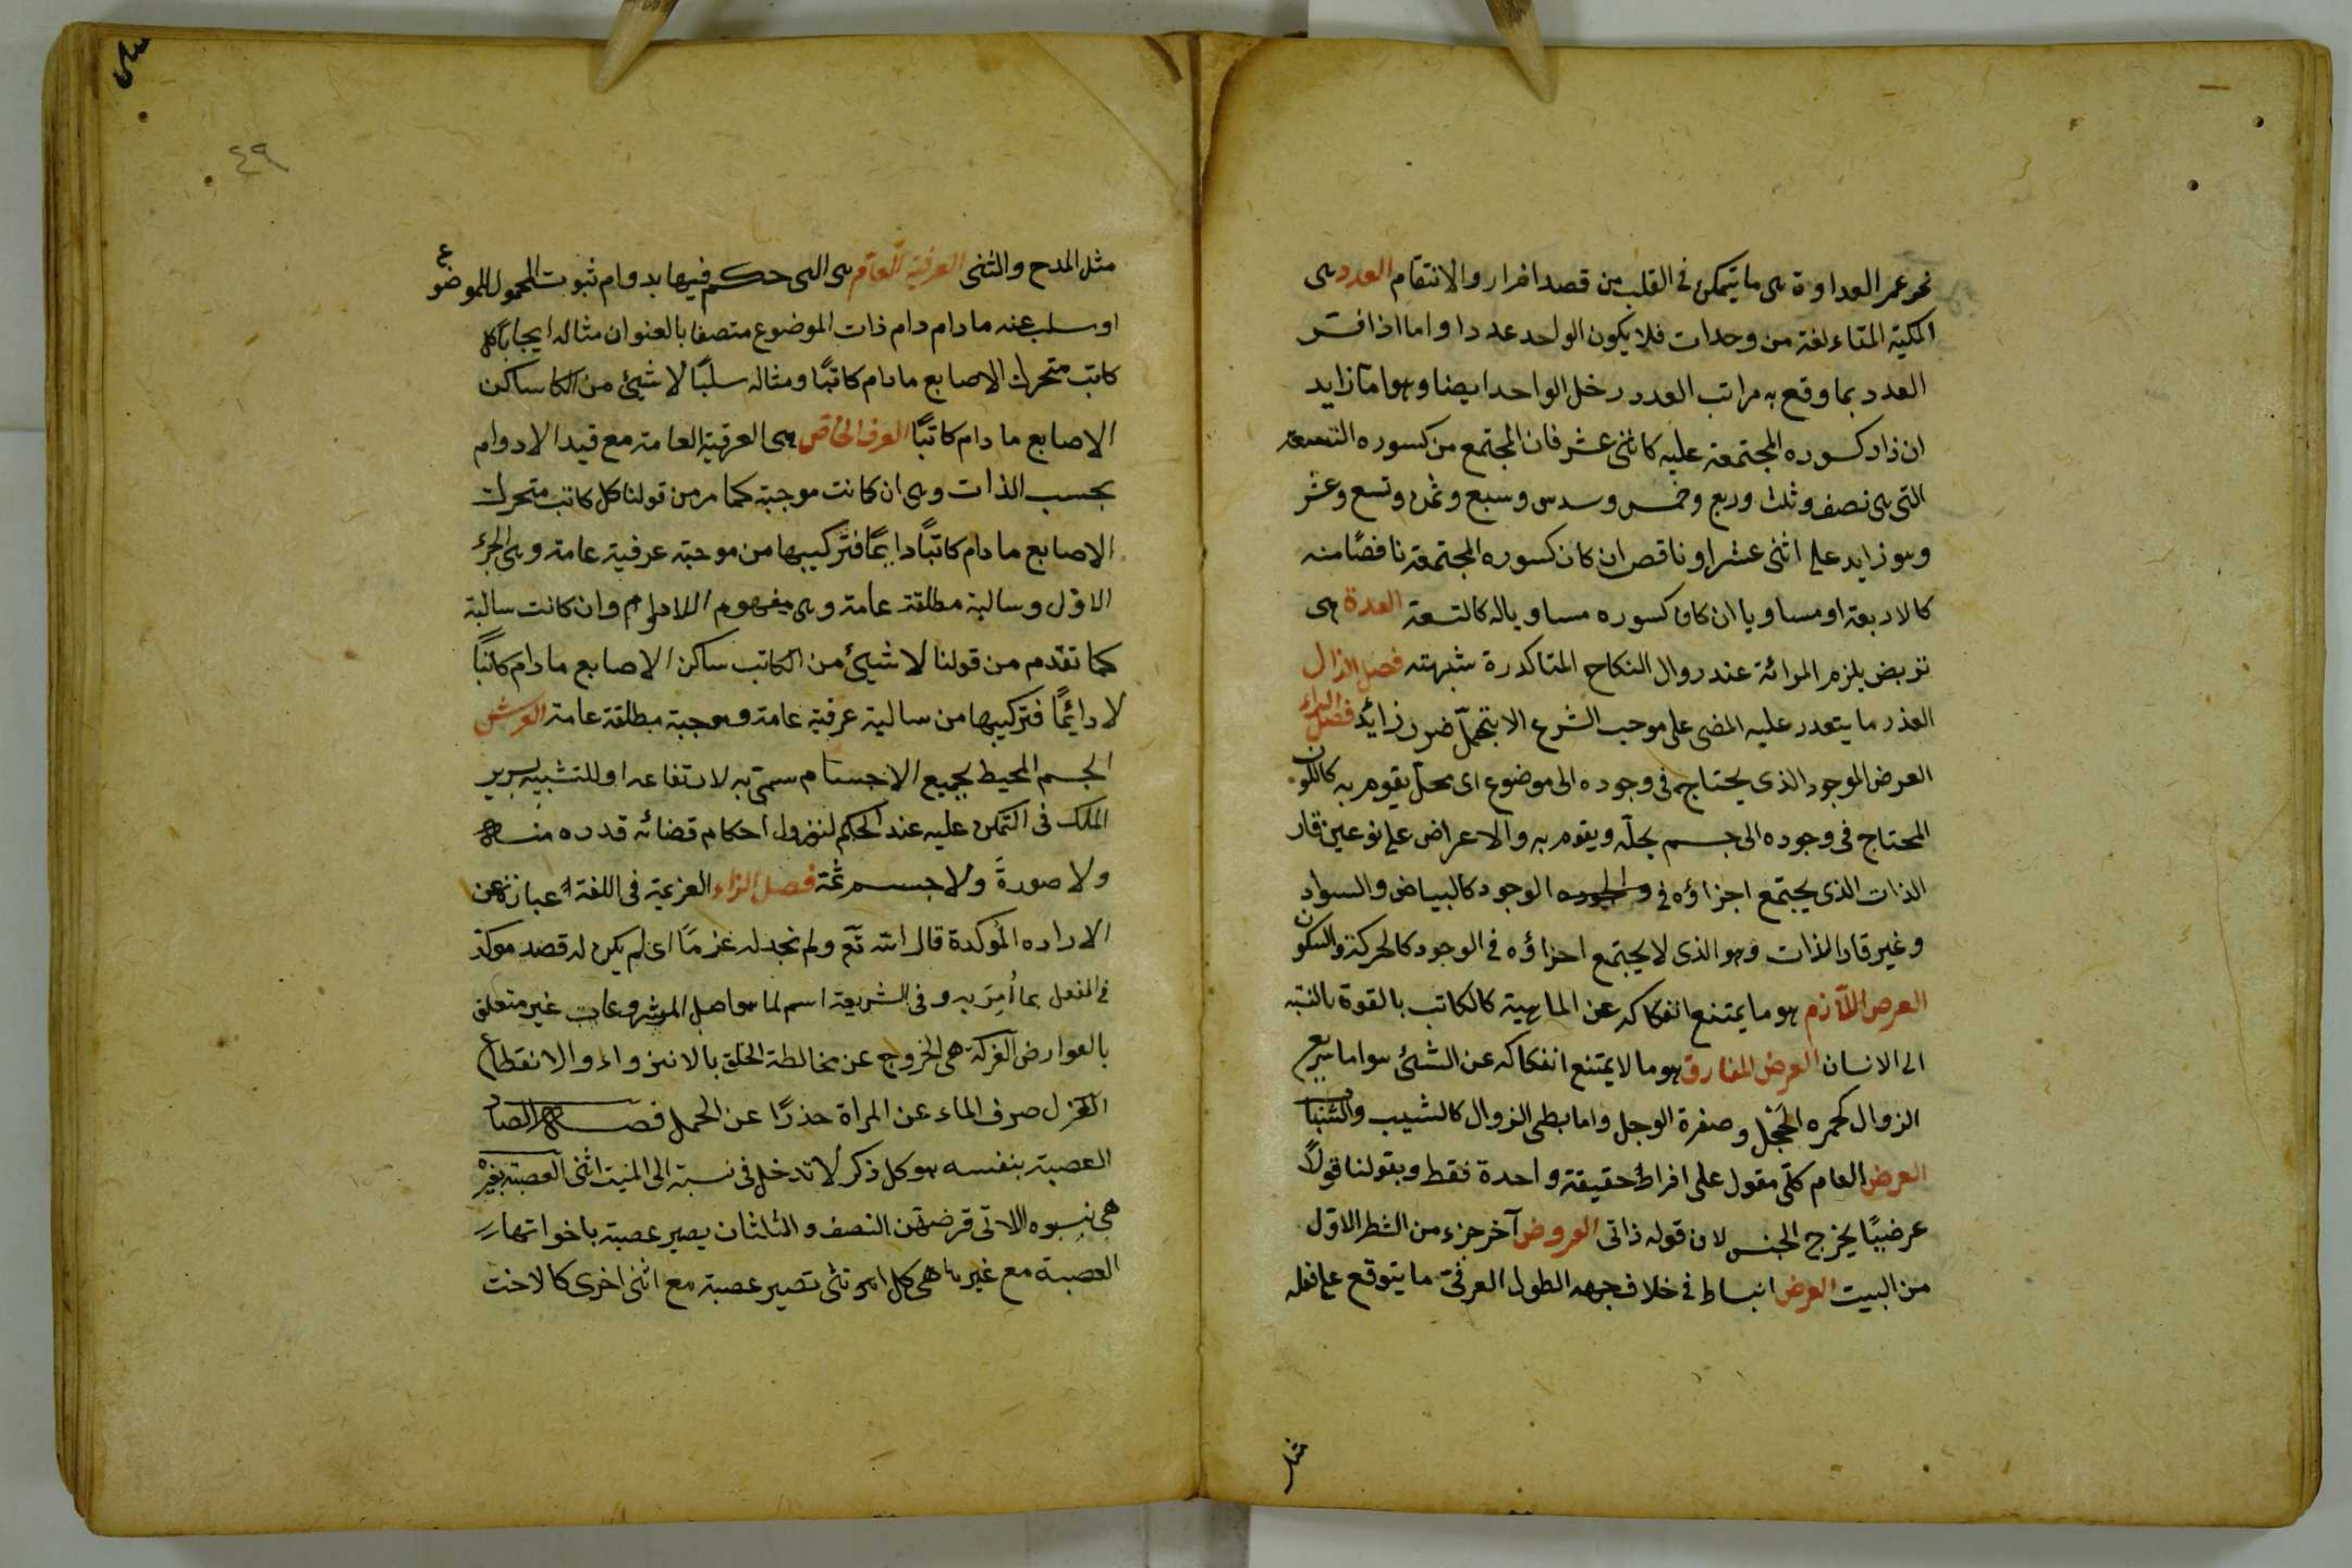 نحو عمر العداوة هى ما يتمكن فى القلب من قصد اضرار والانتقام العدد هى
الكمية المتاءلفة من وحدات فلا يكون الواحد عددا واما اذا فسر
العدد بما وقع به مراتب العدد دخل الواحد ايضا وهو امّا زايد
ان زاد كسوره المجتمعة عليه كاثنى عشر فان المجتمع من كسوره التسعة
التى هى نصف وثلث وربع وخمس وسدس وسبع وثمن وتسع وعشر
وهو زايد على اثنى عشر او ناقص ان كان كسوره المجتمعة ناقصًا منه
كالاربعة او مساويا ان كان كسوره مساويا له كالتسعة العدة هى
تربص يلزم المرائة عند زوال النكاح المتاكد رة شبهته فصل الذال
العذر ما يتعدر عليه المضى على موجب الشرع الا بتحمل ضرر زائد فصل الراء
العرض الموجود الذى يحتاج فى وجوده الى موضوع اى محل يقوم به كاللون
المحتاج فى وجوده الى جسم يحلّه ويقوم به والاعراض على نوعين قار
الذات الذى يجتمع اجزاؤه فى الوجود كالبياض والسواد
وغير قار الذات وهو الذى لا يجتمع اجزاؤه فى الوجود كالحركة والسكون
العرض اللازم هو ما يمتنع انفكاكه عن الماهية كالكاتب بالقوة بالنسبة
الى الانسان العرض المفارق هو ما لا يمتنع انفكاكه عن الشئ هو اما سريع
الزوال كحمره الخجل وصفرة الوجل واما بطى الزوال كالشيب والشباب
العرض العام كلّى مقول على افراط حقيقة واحدة فقط وبقولنا قولاً
عرضيًا يخرج الجنس لان قوله ذاتى العروض آخر جزء من الشطر الاوّل
من البيت العرض انبساط فى خلاف جهه الطول العرفى ما يتوقع على فعله
مثل
٤٩
مثل المدح والثنى العرفية العامّة هى التى حكم فيها بدوام ثبوت المحمول للموضوع
او سلب عنه ما دام دام ذات الموضوع متصفا بالعنوان مثاله ايجابًا كل
كاتب متحرك الاصابع ما دام كاتبًا ومثاله سلبًا لا شئ من الكا ساكن
الاصابع ما دام كاتبًا العرف الخاص هى العرفية العامة مع قيد الادوام
بحسب الذات وهى ان كانت موجبة كما مر من قولنا كل كاتب متحرك
الاصابع ما دام كاتبًا دايمًا فتركيبها من موجبة عرفية عامة وهى الجزء
الاوّل وسالبة مطلقة عامة وهى مفهوم اللادوام وان كانت سالبة
كما تقدم من قولنا لا شئ من الكاتب ساكن الاصابع ما دام كاتبًا
لا دائمًا فتركيبها من سالبة عرفية عامة وموجبة مطلقة عامة العرش
الجسم المحيط بجميع الاجسام سمّى به لارتفاعه او للتشبيه بسرير
الملك فى التمكن عليه عند الحكم لنزول احكام قضائه قدره منه
ولا صورةَ ولا جسم ثمّة فصل الزاء العزيمة فى اللغة عبارة عن
الاراده المؤكدة قال الله تع ولم نجد له عزمًا اى لم يكن له قصد موكد
فى الفعل بما أُمِرَ به وفى الشريعة اسم لما هو اصل المشروعات غير متعلق
بالعوارض العزلة هى الخروج عن مخالطة الخلق بالانزواء والانقطاع
العزل صرف الماء عن المراة حذرًا عن الحمل فصل الصاد
العصبة بنفسه هو كل ذكر لا تدخل فى نسبته الى الميت انثى العصبة بغيره
هى نسوه اللاتى فرضهن النصف والثلثان يصير عصبة باخواتهار
العصبة مع غيرها هى كل انثى تصير عصبة مع انثى اخرى كالاخت